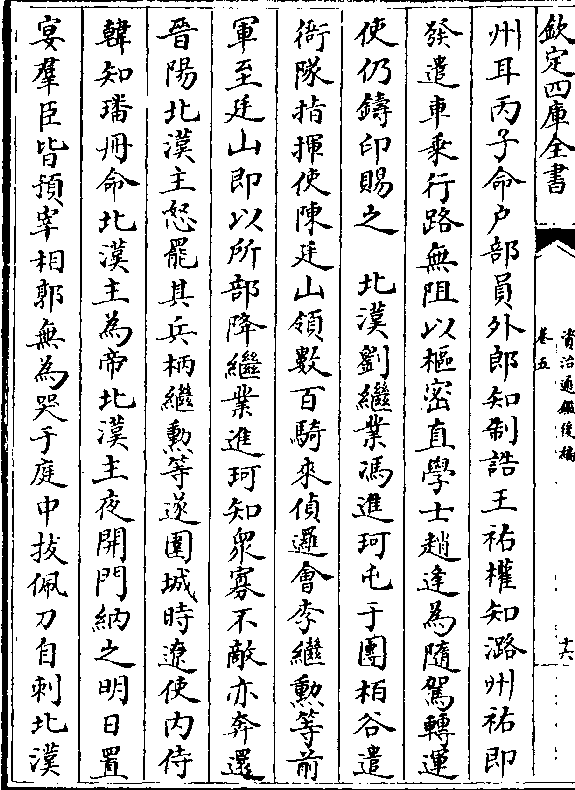 欽定四庫全書
資治通鑑後編
卷五
十六
州耳丙子命户部員外郎知制誥王祐權知潞州祐即
發遣車乘行路無阻以樞密直學士趙逢為隨駕轉運
使仍鑄印賜之　北漢劉繼業馮進珂屯于團柏谷遣
衙隊指揮使陳廷山領數百騎來偵邏會李繼勲等前
軍至廷山即以所部降繼業進珂知衆寡不敵亦奔還
晉陽北漢主怒罷其兵柄繼勲等遂圍城時遼使内侍
韓知璠冊命北漢主為帝北漢主夜開門納之明日置
宴羣臣皆預宰相郭無為哭于庭中拔佩刀自刺北漢